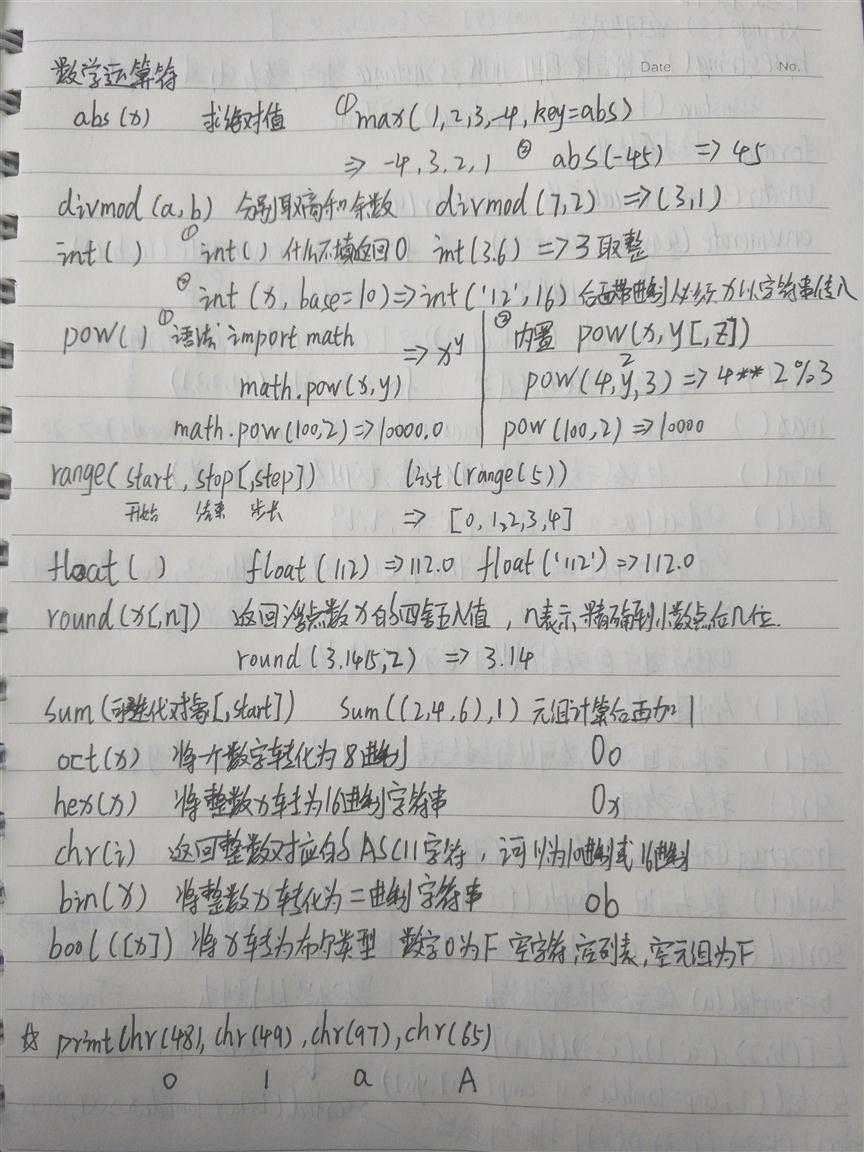 Date. No.
数学运算符
abs(x) 求绝对值 ①max(1,2,3,-4,key=abs)
=> -4,3,2,1 ② abs(-45) => 45
divmod(a,b) 分别取商和余数 divmod(7,2) => (3,1)
int() ①int() 什么不填返回0 int(3.6) => 3 取整
②int(x, base=10) => int('12',16) 后面带进制必须x以字符串传入
pow() ①语法 import math => x^y ②内置 pow(x,y[,z])
math.pow(x,y) pow(4,2,3) => 4**2%3
math.pow(100,2) => 10000.0 pow(100,2) => 10000
range(start, stop[,step]) list(range(5))
开始 结束 步长 => [0,1,2,3,4]
float() float(112) => 112.0 float('112') => 112.0
round(x[,n]) 返回浮点数x的四舍五入值,n表示精确到小数点后几位.
round(3.1415,2) => 3.14
sum(可迭代对象[,start]) sum((2,4,6),1) 元组计算后再加1
oct(x) 将一个数字转化为8进制 0o
hex(x) 将整数x转为16进制字符串 0x
chr(i) 返回整数对应的ASCII字符,i可以为10进制或16进制
bin(x) 将整数x转化为二进制字符串 0b
bool([x]) 将x转为布尔类型 数字0为F 空字符,空列表,空元组为F
☆ print chr(48), chr(49), chr(97), chr(65)
0 1 a A